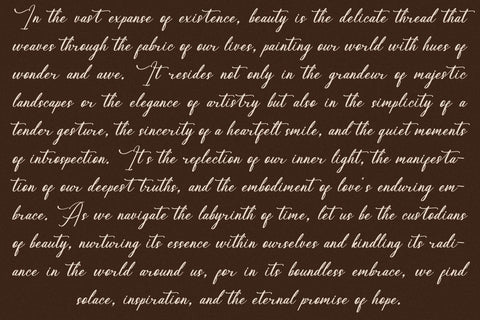 In the vast expanse of existence, beauty is the delicate thread that
weaves through the fabric of our lives, painting our world with hues of
wonder and awe. It resides not only in the grandeur of majestic
landscapes or the elegance of artistry but also in the simplicity of a
tender gesture, the sincerity of a heartfelt smile, and the quiet moments
of introspection. It's the reflection of our inner light, the manifesta-
tion of our deepest truths, and the embodiment of love's enduring em-
brace. As we navigate the labyrinth of time, let us be the custodians
of beauty, nurturing its essence within ourselves and kindling its radi-
ance in the world around us, for in its boundless embrace, we find
solace, inspiration, and the eternal promise of hope.